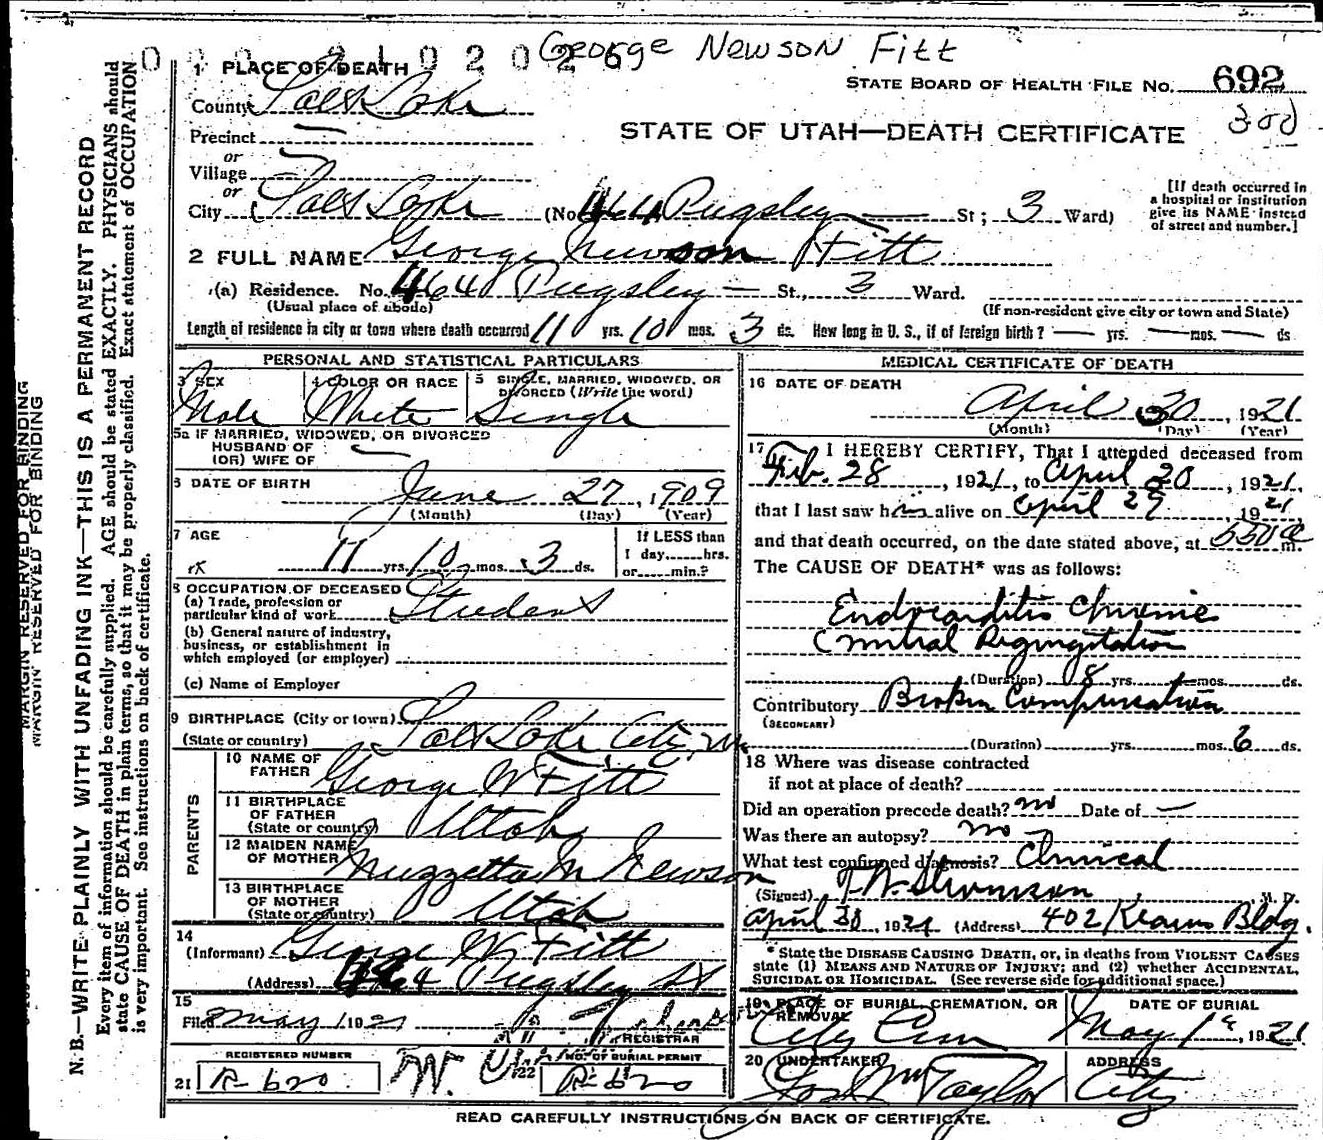 George Newson Fitt
1 PLACE OF DEATH
STATE BOARD OF HEALTH FILE No. 692
County Salt Lake
300
Precinct
STATE OF UTAH—DEATH CERTIFICATE
or
Village
or
City Salt Lake (No. 464 Pugsley St; 3 Ward)
[If death occurred in
a hospital or institution
give its NAME instead
of street and number.]
2 FULL NAME George Newson Fitt
(a) Residence. No. 464 Pugsley — St., 3 Ward.
(Usual place of abode) (If non-resident give city or town and State)
Length of residence in city or town where death occurred 11 yrs. 10 mos. 3 ds. How long in U. S., if of foreign birth? — yrs. — mos. — ds
PERSONAL AND STATISTICAL PARTICULARS
3 SEX Male
4 COLOR OR RACE White
5 SINGLE, MARRIED, WIDOWED, OR
DIVORCED (Write the word) Single
5a IF MARRIED, WIDOWED, OR DIVORCED
HUSBAND OF
(OR) WIFE OF
6 DATE OF BIRTH June 27, 1909
(Month) (Day) (Year)
7 AGE
11 yrs. 10 mos. 3 ds.
If LESS than
1 day......hrs.
or......min.?
8 OCCUPATION OF DECEASED
(a) Trade, profession or
particular kind of work Student
(b) General nature of industry,
business, or establishment in
which employed (or employer)
(c) Name of Employer
9 BIRTHPLACE (City or town)
(State or country) Salt Lake City,
PARENTS
10 NAME OF
FATHER George W Fitt
11 BIRTHPLACE
OF FATHER
(State or country) Utah
12 MAIDEN NAME
OF MOTHER Muzzetta M Newson
13 BIRTHPLACE
OF MOTHER
(State or country) Utah
14
(Informant) George W Fitt
(Address) 464 Pugsley St
15
Filed May 1 1921
REGISTRAR
REGISTERED NUMBER
No. OF BURIAL PERMIT
21 R-620
R-620
MEDICAL CERTIFICATE OF DEATH
16 DATE OF DEATH
April 30, 1921
(Month) (Day) (Year)
17 I HEREBY CERTIFY, That I attended deceased from
Feb. 28, 1921, to April 30, 1921,
that I last saw him alive on April 29, 1921
and that death occurred, on the date stated above, at 550 a m.
The CAUSE OF DEATH* was as follows:
Endocarditis Chronic
Mitral Regurgitation
(Duration) 8 yrs. — mos. ds.
Contributory Broken Compensation
(SECONDARY)
(Duration) yrs. mos. 6 ds.
18 Where was disease contracted
if not at place of death?
Did an operation precede death? no Date of —
Was there an autopsy? no
What test confirmed diagnosis? Clinical
(Signed) M. D.
April 30, 1921 (Address) 402 Kearns Bldg.
* State the DISEASE CAUSING DEATH, or, in deaths from VIOLENT CAUSES
state (1) MEANS AND NATURE OF INJURY; and (2) whether ACCIDENTAL,
SUICIDAL OR HOMICIDAL. (See reverse side for additional space.)
19 PLACE OF BURIAL, CREMATION, OR
REMOVAL City Cem
DATE OF BURIAL
May 1st, 1921
20 UNDERTAKER Jos Wm Taylor
ADDRESS
City
READ CAREFULLY INSTRUCTIONS ON BACK OF CERTIFICATE.
MARGIN RESERVED FOR BINDING
MARGIN RESERVED FOR BINDING
N. B.—WRITE PLAINLY WITH UNFADING INK—THIS IS A PERMANENT RECORD
Every item of information should be carefully supplied. AGE should be stated EXACTLY. PHYSICIANS should
state CAUSE OF DEATH in plain terms, so that it may be properly classified. Exact statement of OCCUPATION
is very important. See instructions on back of certificate.